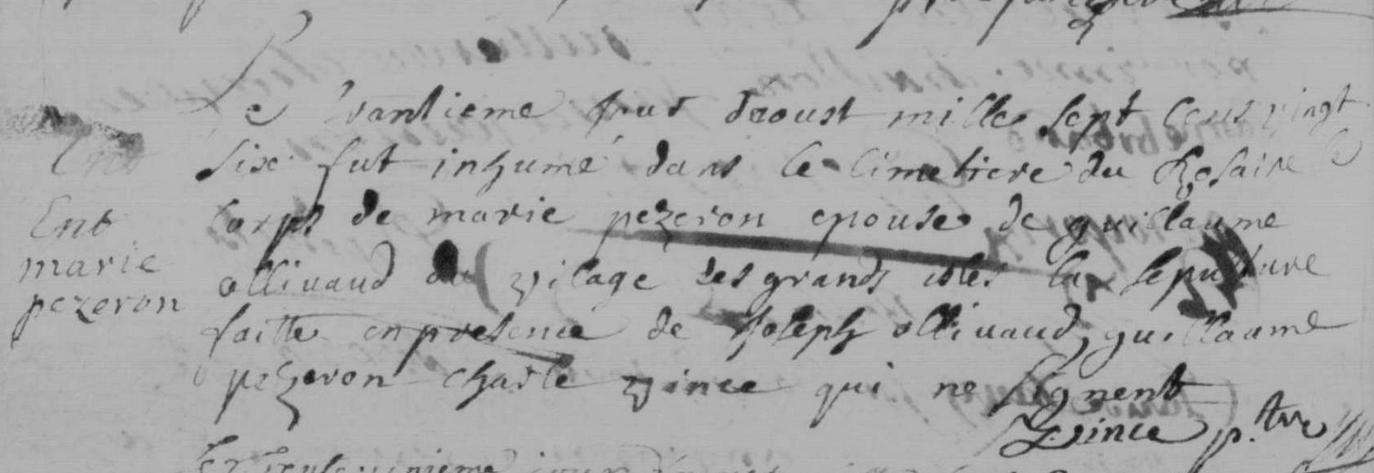 Le vantieme jour daoust mille sept cens vingt
six fut inhumé dans le cimetiere du Rosaire le
Corps de marie pezeron epouse de guillaume
Ent
marie
pezeron
ollivaud du vilage des grands isles la sepulture
faitte en presence de Joseph ollivaud, guillaume
pezeron charle vince qui ne signent
Vince p.tre